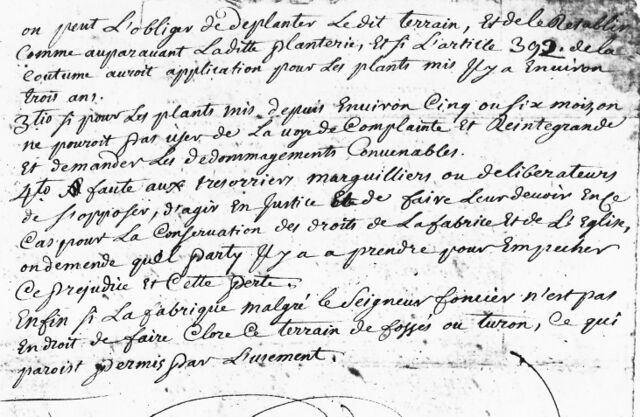 on peut L'obliger de deplanter Le dit terrain, Et de le Retablir
Comme auparauant Laditte planterie, Et si L'article 392. de la
Coutume auroit application pour Les plants mis Jl y a Environ
trois ans.
3tio si pour Les plants mis depuis Environ Cinq ou six mois on
ne pouroit pas user de La voye de Complainte Et Reintegrande
Et demander Les dedommagements Convenables.
4to A faute aux tresorriers marguilliers ou deliberateurs
de s'opposer, d'agir En Justice Et de faire Leur devoir En Ce
Cas pour La Conservation des droits de La fabrice Et de L'Eglise,
on demende quel party Jl y a a prendre pour Empecher
Ce prejudice Et Cette perte.
Enfin si La fabrique malgré le Seigneur foncier n'est pas
En droit de faire Clore Ce terrain de fossés ou turon, Ce qui
paroist permis par L'usement.